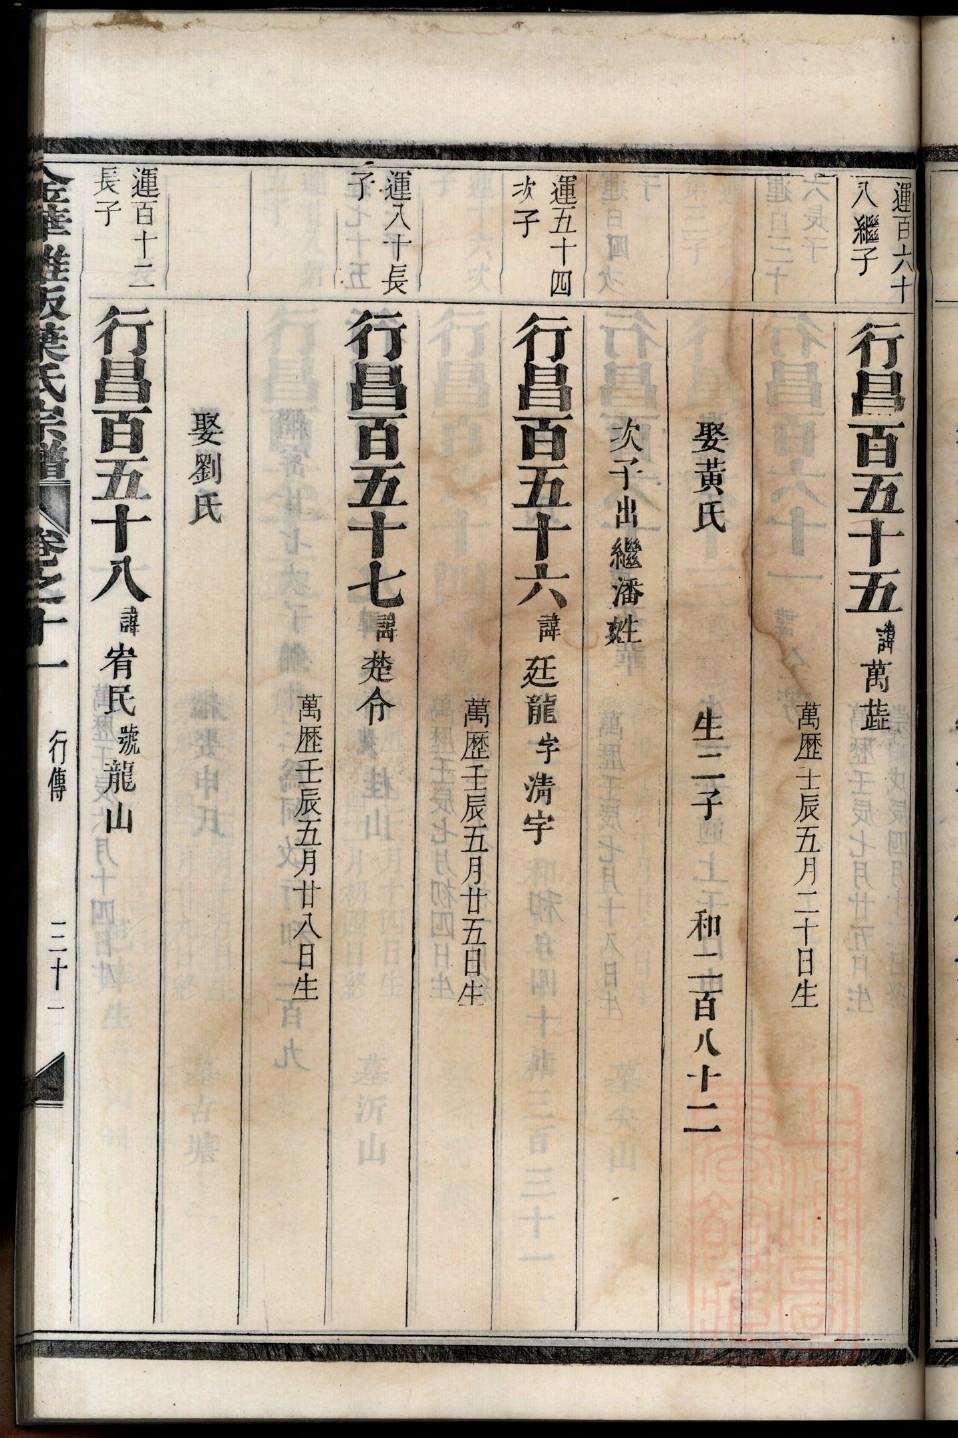 運百六十
八繼子
行昌百五十五 諱萬蓝
萬歷壬辰五月二十日生
娶黃氏 生二子 和二百八十二
次子出繼潘姓
運五十四
次子
行昌百五十六 諱廷龍字清宇
萬歷壬辰五月廿五日生
運八十長
子
行昌百五十七 諱楚令
萬歷壬辰五月廿八日生
娶劉氏
運百十三
長子
行昌百五十八 諱宥民號龍山
葉氏宗譜 卷之十一 行傳 三十一